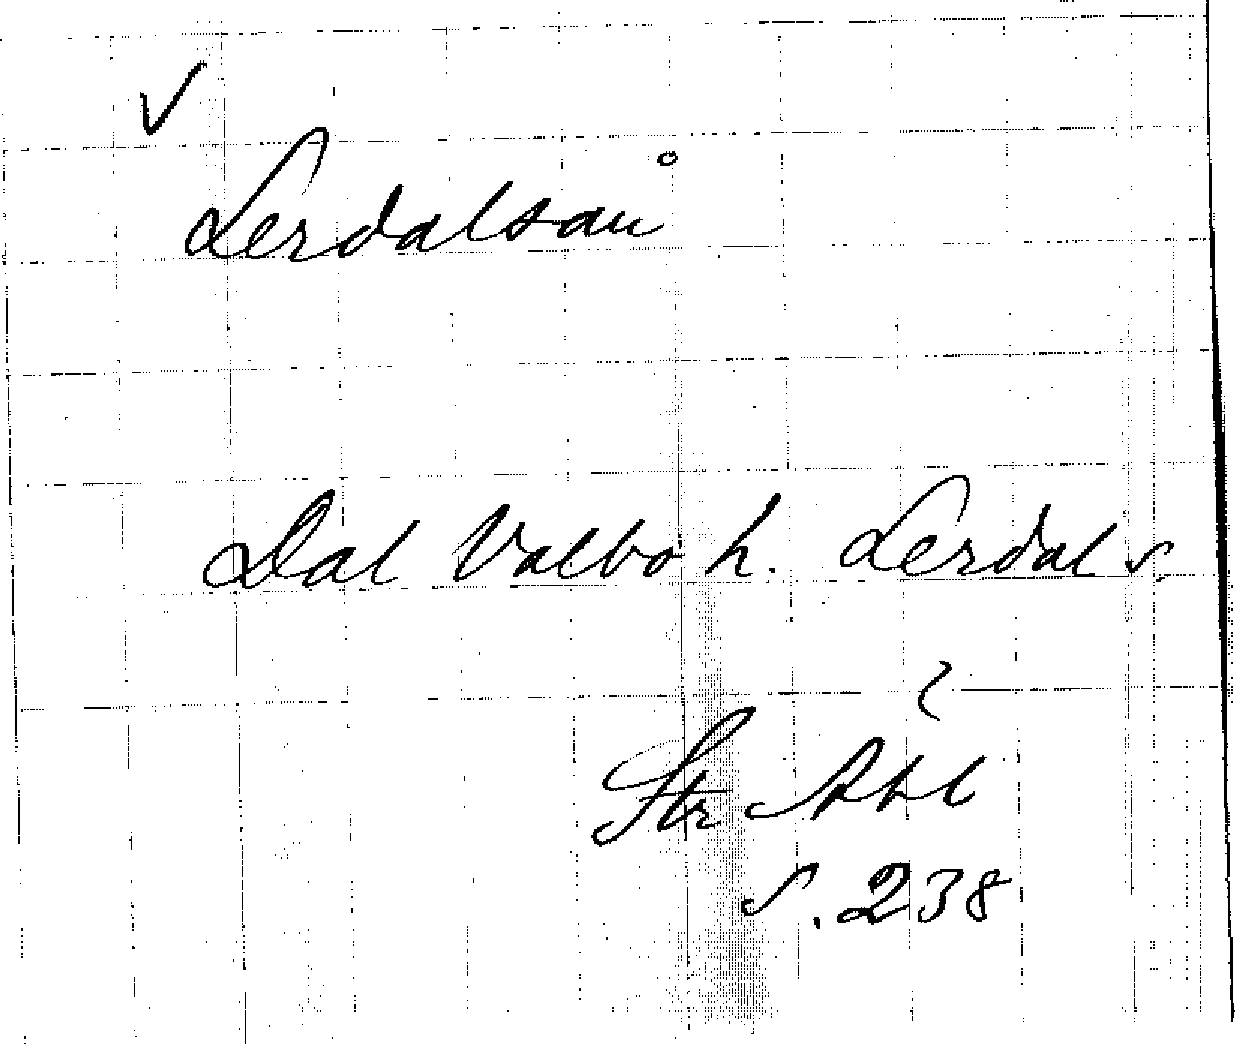 ✓
Lerdalsån
Dal Valbo h. Lerdal s.
Str Ahl
s. 238